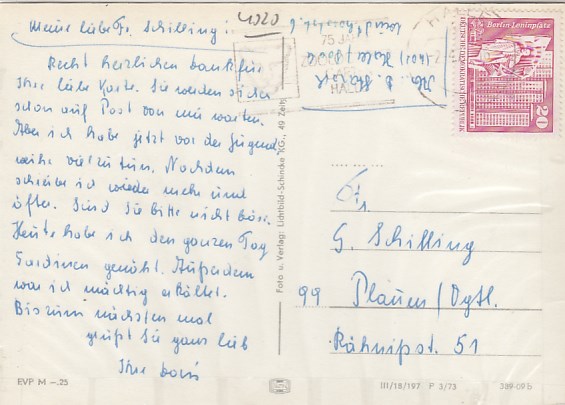 4020
Meine liebe Fr. Schilling!
Recht herzlichen Dank für
Ihre liebe Karte. Sie werden sicher
schon auf Post von mir warten.
Aber ich habe jetzt vor der Jugend-
weihe viel zu tun. Nachdem
schreibe ich wieder mehr und
öfter. Sind Sie bitte nicht böse.
Heute habe ich den ganzen Tag
Gardinen genäht. Außerdem
war ich mächtig erkältet.
Bis zum nächsten mal
grüßt Sie ganz lieb
Ihre Doris
EVP M –.25
Foto u. Verlag: Lichtbild-Schincke KG., 49 Zeitz
75 J
ZOO
HALLE
Berlin Leninplatz
20
Fr.
G. Schilling
99 Plauen/Vgtl.
Rähnisstr. 51
III/18/197 P 3/73
389-09 b